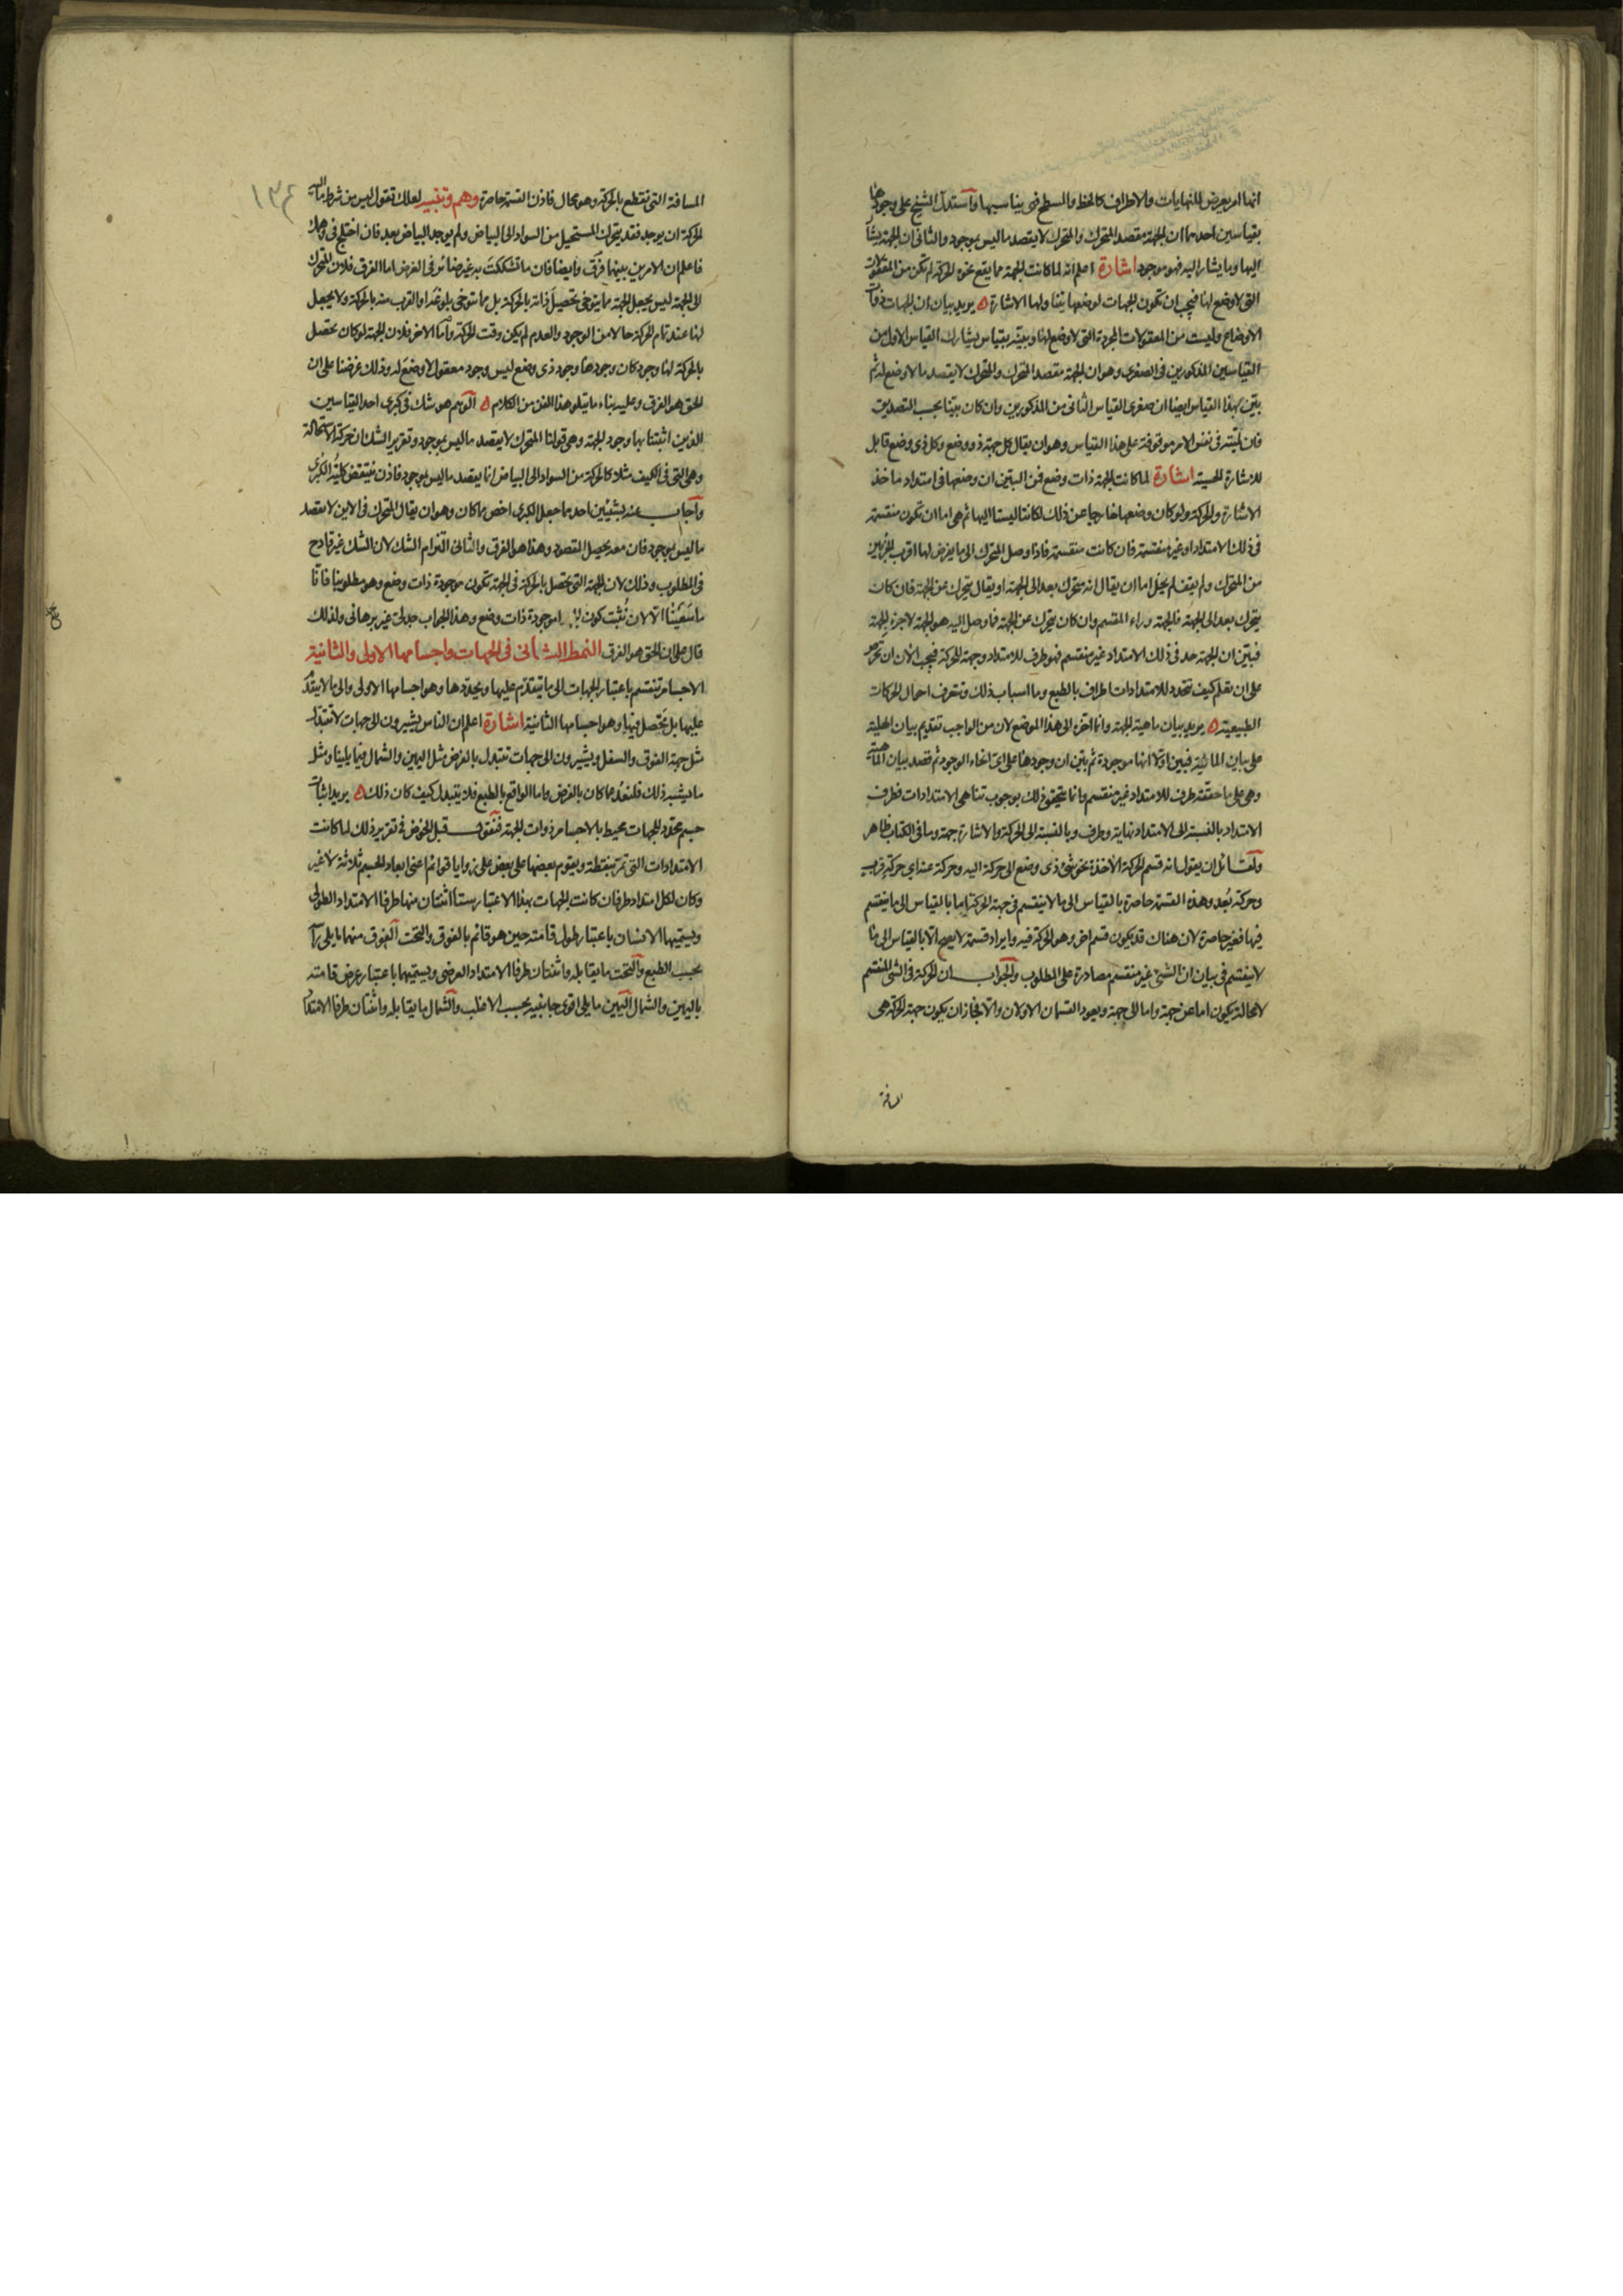 انها امر يعرض للنهايات والاطراف كالخط والسطح فهى يناسبها واستدل الشيخ على وجودها
بقياسين احدهما ان الجهة مقصد المتحرك والمتحرك لا يقصد ما ليس بموجود والثانى ان الجهة يشار
اليها وما يشار اليه فهو موجود اشارة اعلم انه لما كانت الجهة مما يقع نحوه الحركة لم تكن من المعقولات
التى لا وضع لها فيجب ان تكون الجهات لوضعها يتنا ولها الاشارة ه يريد بيان ان الجهات ذوات
الاوضاع وليست من المعقولات المجردة التى لا وضع لها وبينه بقياس يشارك القياس الاول من
القياسين المذكورين فى الصغرى وهو ان الجهة مقصد المتحرك والمتحرك لا يقصد ما لا وضع له ثم
بيّن بهذا القياس ايضا ان صغرى القياس الثانى من المذكورين وان كان بيّنا بحسب التصديق
فان لميّته فى نفس الامر موقوفة على هذا القياس وهو ان يقال كل جهة ذو وضع وكل ذى وضع قابل
للاشارة الحسية اشارة لما كانت الجهة ذات وضع فمن البيّن ان وضعها فى امتداد ماخذ
الاشارة والحركة ولو كان وضعها خارجا عن ذلك لكانتا ليستا اليها ثم هى اما ان تكون منقسمة
فى ذلك الامتداد او غير منقسمة فان كانت منقسمة فاذا وصل المتحرك الى ما يفرض لها اقرب الجزئين
من المتحرك ولم يقف لم يخل اما ان يقال انه متحرك بعد الى الجهة او يقال يتحرك عن الجهة فان كان
يتحرك بعد الى الجهة فالجهة وراء المنقسم وان كان يتحرك عن الجهة فما وصل اليه هو الجهة لا جزء الجهة
فبيّن ان الجهة حد فى ذلك الامتداد غير منقسم فهو طرف للامتداد وجهة للحركة فيجب الان ان تحرص
على ان تعلم كيف تتحدد للامتدادات اطراف بالطبع وما اسباب ذلك وتتعرف احوال الحركات
الطبيعية ه يريد بيان ماهية الجهة وانما اخره الى هذا الموضع لان من الواجب تقديم بيان الهلية
على بيان المائية فبين اولا انها موجودة ثم بين ان وجودها على اى انحاء الوجود ثم قصد بيان الماهية
وهى على ما حققه طرف للامتداد غير منقسم وانما يتحقق ذلك بوجوب تناهى الامتدادات فطرف
الامتداد بالنسبة الى الامتداد نهاية وطرف وبالنسبة الى الحركة والاشارة جهة وما فى الكتاب ظاهر
ولقائل ان يقول انه قسم الحركة الاخذة نحو شئ ذى وضع الى حركة اليه وحركة عنه اى حركة قرب
وحركة بُعد وهذه القسمة حاصرة بالقياس الى ما لا ينقسم فى جهة الحركة اما بالقياس الى ما ينقسم
فيها فغير حاصرة لان هناك قد يكون قسم اخر وهو الحركة فيه وايراد قسمة لا يصح الا بالقياس الى ما
لا ينقسم فى بيان ان الشئ غير منقسم مصادرة على المطلوب والجواب ان الحركة فى الشئ المنقسم
لا محالة يكون اما عن جهة واما الى جهة ويعود القسمان الاولان والا لجاز ان يكون جهة الحركة هى
المسافة
١٣٤
المسافة التى تقطع بالحركة وهو محال فاذن القسمة حاصرة وهم وتنبيه لعلك تقول ليس من شرط ما اليه
الحركة ان يوجد فقد يتحرك المستحيل من السواد الى البياض ولم يوجد البياض بعد فان اختلج فى وهمك
فاعلم ان الامرين بينهما فرق وايضا فان ما تشككت به غير ضائر فى الغرض اما الفرق فلان المتحرك
الى الجهة ليس يجعل الجهة مما يتوخى تحصيل ذاته بالحركة بل مما يتوخى بلوغه او القرب منه بالحركة ولا يجعل
لها عند تمام الحركة حالا من الوجود والعدم لم يكن وقت الحركة واما الاخر فلان الجهة لو كان تحصل
بالحركة لها وجود كان وجودها وجود ذى وضع ليس وجود معقول لا وضع له وذلك غرضنا على ان
الحق هو الفرق وعليه بناء ما يتلو هذا الفن من الكلام ه الوهم هو شك فى كبرى احد القياسين
الذين اثبتنا بها وجود الجهة وهى قولنا المتحرك لا يقصد ما ليس بموجود وتقرير الشك ان حركة الاستحالة
وهى التى فى الكيف مثلا كالحركة من السواد الى البياض انما يقصد ما ليس بموجود فاذن ينتقض كلية الكبرى
واجاب عنه بشيئين احدهما جعل الكبرى اخص مما كان وهو ان يقال المتحرك فى الاين لا يقصد
ما ليس بموجود فان معه يحصل المقصود وهذا هو الفرق والثانى التزام الشك لان الشك غير قادح
فى المطلوب وذلك لان الجهة التى تحصل بالحركة فى الجهة تكون موجودة ذات وضع وهو مطلوبنا فانا
ما سعينا الا لان نثبت كون موجودة ذات وضع وهذا الجواب جدلى غير برهانى ولذلك
قال على ان الحق هو الفرق النمط الثانى فى الجهات واجسامها الاولى والثانية
الاجسام تنقسم باعتبار الجهات الى ما يتقدم عليها ويحددها وهو اجسامها الاولى والى ما لا يتقدم
عليها بل يتحصل فيها وهو اجسامها الثانية اشارة اعلم ان الناس يشيرون الى جهات لا تتبدل
مثل جهة الفوق والسفل ويشيرون الى جهات تتبدل بالفرض مثل اليمين والشمال فيما يلينا ومثل
ما يشبه ذلك فلنعد عما كان بالفرض واما الواقع بالطبع فلا يتبدل كيف كان ذلك ه يريد اثبات
جسم محدد للجهات محيط بالاجسام ذوات الجهة فنقول قبل الخوض فى تقرير ذلك لما كانت
الامتدادات التى تمر بنقطة ويقوم بعضها على بعض على زوايا قوائم اعنى ابعاد الجسم ثلاثة لا غير
وكان لكل امتداد طرفان كانت الجهات بهذا الاعتبار ستا اثنتان منها طرفا الامتداد الطولى
ويسميها الانسان باعتبار طول قامته حين هو قائم بالفوق والتحت الفوق منهما ما يلى رأسه
بحسب الطبع والتحت ما يقابله واثنتان طرفا الامتداد العرضى ويسميهما باعتبار عرض قامته
باليمين والشمال اليمين ما يلى اقوى جانبيه بحسب الاغلب والشمال ما يقابله واثنتان طرفا الامتداد